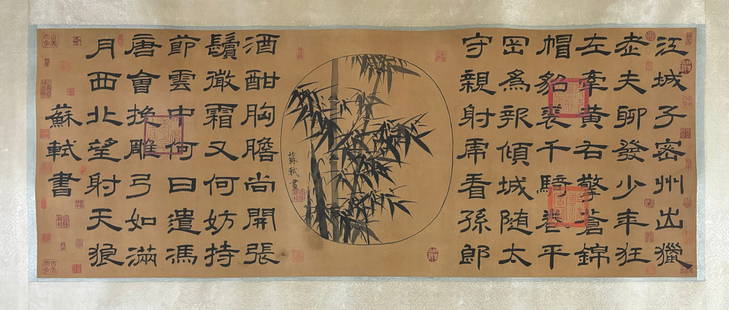 江城子密州出獵
老夫聊發少年狂
左牽黃右擎蒼錦
帽貂裘千騎卷平
岡為報傾城隨太
守親射虎看孫郎
蘇軾畫
酒酣胸膽尚開張
鬢微霜又何妨持
節雲中何日遣馮
唐會挽雕弓如滿
月西北望射天狼
蘇軾書